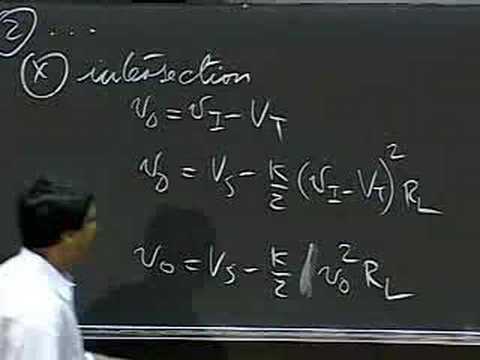 ② ....
Ⓧ intersection
v_O = v_I - V_T
v_O = V_S - K/2 (v_I - V_T)² R_L
v_O = V_S - K/2 v_O² R_L